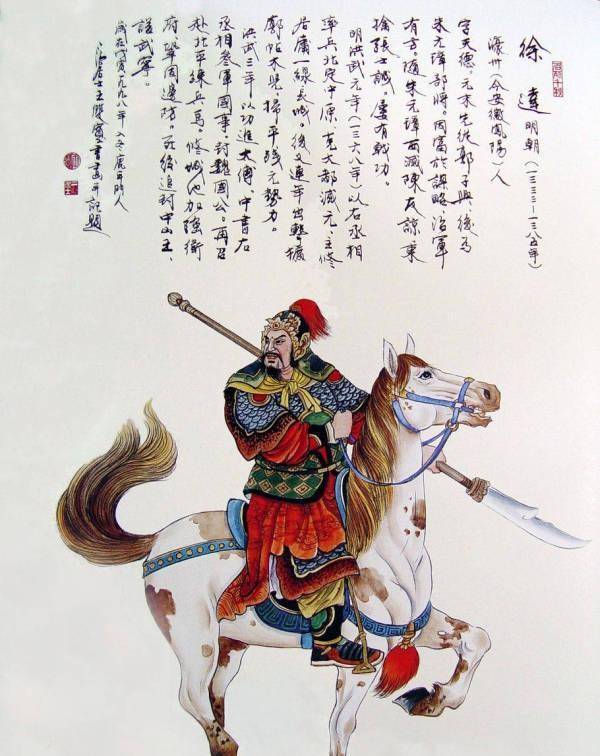 徐達 明朝（一三三二－一三八五年）
濠州（今安徽鳳陽）人
字天德。元末先從郭子興後為
朱元璋部將。因富於謀略治軍
有方。隨朱元璋西滅陳友諒東
擒張士誠。屢有戰功。
明洪武元年（一三六八年）以右丞相
率兵北定中原。克大都滅元。主修
居庸一線長城。後又連年出擊擴
廓帖木兒。掃平殘元勢力。
洪武三年以功進太傅中書右
丞相參軍國事。封魏國公。再召
赴北平練兵馬。修城池加強衛
府鞏固邊防。死後追封中山王、
諡武寧。
歲在戊寅一九九八年入冬
居士王雙寬書畫并記題